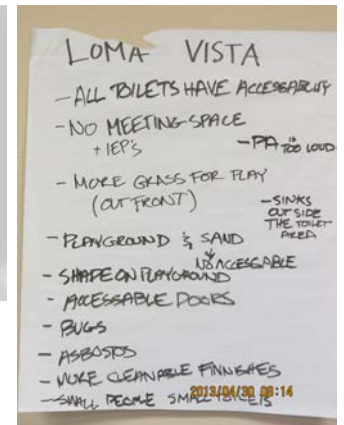 LOMA VISTA
- ALL TOILETS HAVE ACCESSABILITY
- NO MEETING SPACE
+ IEP'S
- PA IS TOO LOUD
- MORE GRASS FOR PLAY
(OUT FRONT)
- SINKS
OUTSIDE
THE TOILET
AREA
- PLAYGROUND & SAND
NO ACCESSABLE
- SHAPE ON PLAYGROUND
- ACCESSABLE DOORS
- BUGS
- ASBOSTOS
- MORE CLEANABLE FINNISHES
- SMALL PEOPLE SMALL TOILETS
2013/04/30 08:14